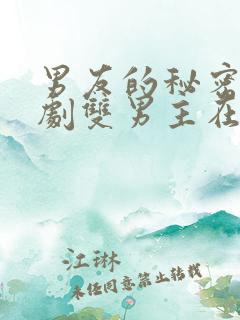 男友的秘密
劇雙男主在
江琳
未任同意禁止转载